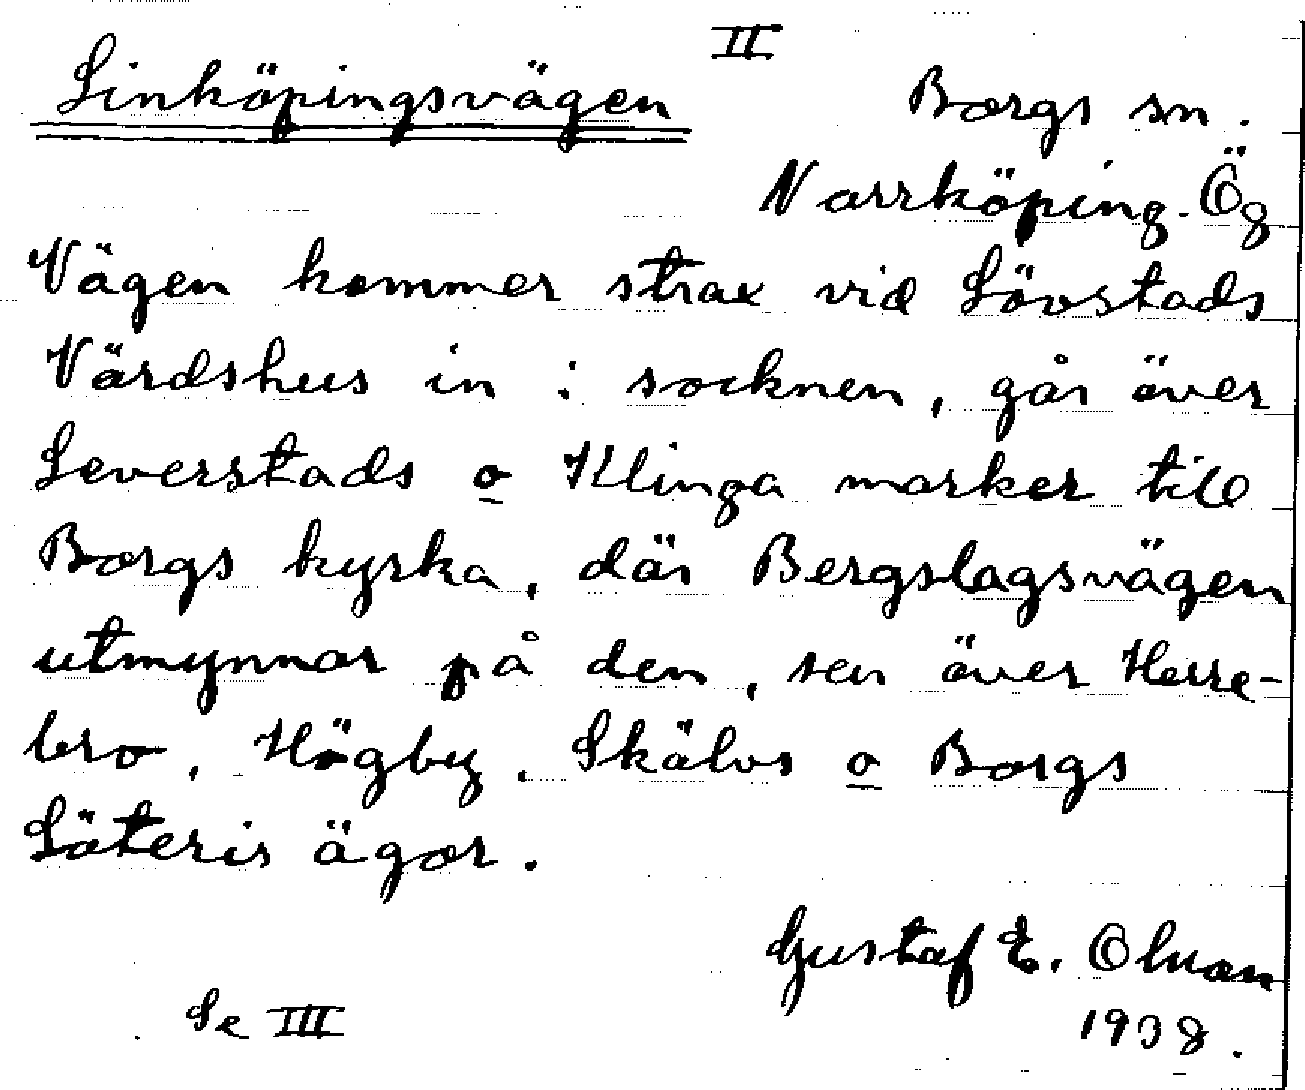 II
Linköpingsvägen
Borgs sn.
Norrköping. Ög
Vägen kommer strax vid Lövstads
Värdshus in i socknen, går över
Leverstads o Klinga marker till
Borgs kyrka, där Bergslagsvägen
utmynnar på den, sen över Herre-
bro, Högby, Skälvs o Borgs
Säteris ägor.
Gustaf E. Olman
Se III
1938.